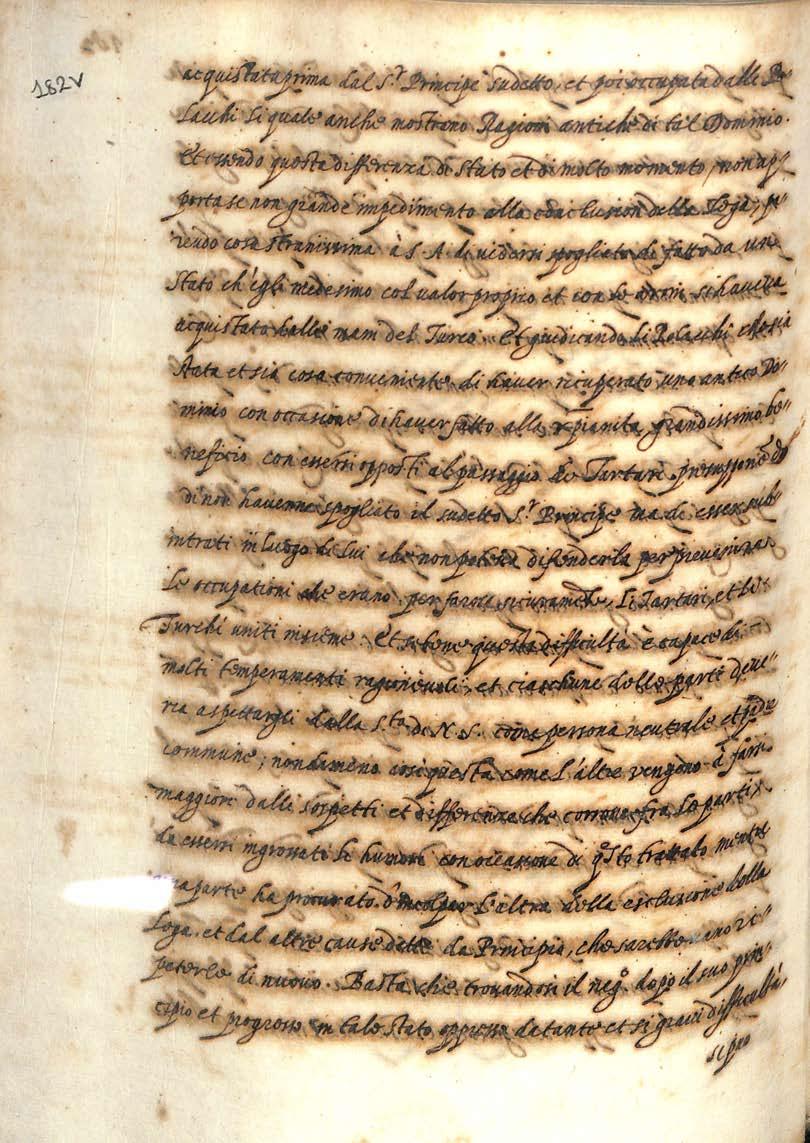 182v
acquistata prima dal S.r Principe sudetto, et poi occupata dalli Po-
lacchi li quale anche mostrano Ragioni antiche di tal Dominio.
Et essendo questa differenza di stato et di molto momento, non ap-
porta se non grande impedimento alla conclusion della Lega, pa-
rendo cosa stranissima à S. A. di vedersi spogliato di fatto da uno
stato ch'egli medesimo col valor proprio et con le armi si haveva
acquistato dalle mani del Turco. Et giudicando li Polacchi che sia
stata et sia cosa conveniente di haver ricuperato uno antico Do-
minio con occasione di haver fatto alla xpianità grandissimo be-
neficio con essersi opposti al passaggio de Tartari, presupponendo
di non haverne spogliato il sudetto S.r Principe ma di esser sub-
intrati in luogo di lui che non poteva difenderla per prevenire
le occupationi che erano per farne sicuramente li Tartari, et li
Turchi uniti insieme. Et se bene questa difficultà è capace di
molti temperamenti ragionevoli, et ciaschune delle parti deve-
ria aspettargli dalla S.tà di N. S. come persona neutrale et padre
commune; nondimeno così questa come l'altre vengono à farsi
maggiori dalli sospetti et differenza che corrono fra le parti
da essersi ingrossati li humori con occasione di q.sto trattato mentre
una parte ha procurato d'incolpar l'altra della esclusione della
Lega, et dal altre cause dette da Principio, che sarebbe vano ri-
peterle di nuovo. Basta che trovandosi il neg.o dopo il suo prin-
cipio et progresso in tale stato oppresso da tante et si gravi difficultà,
si può